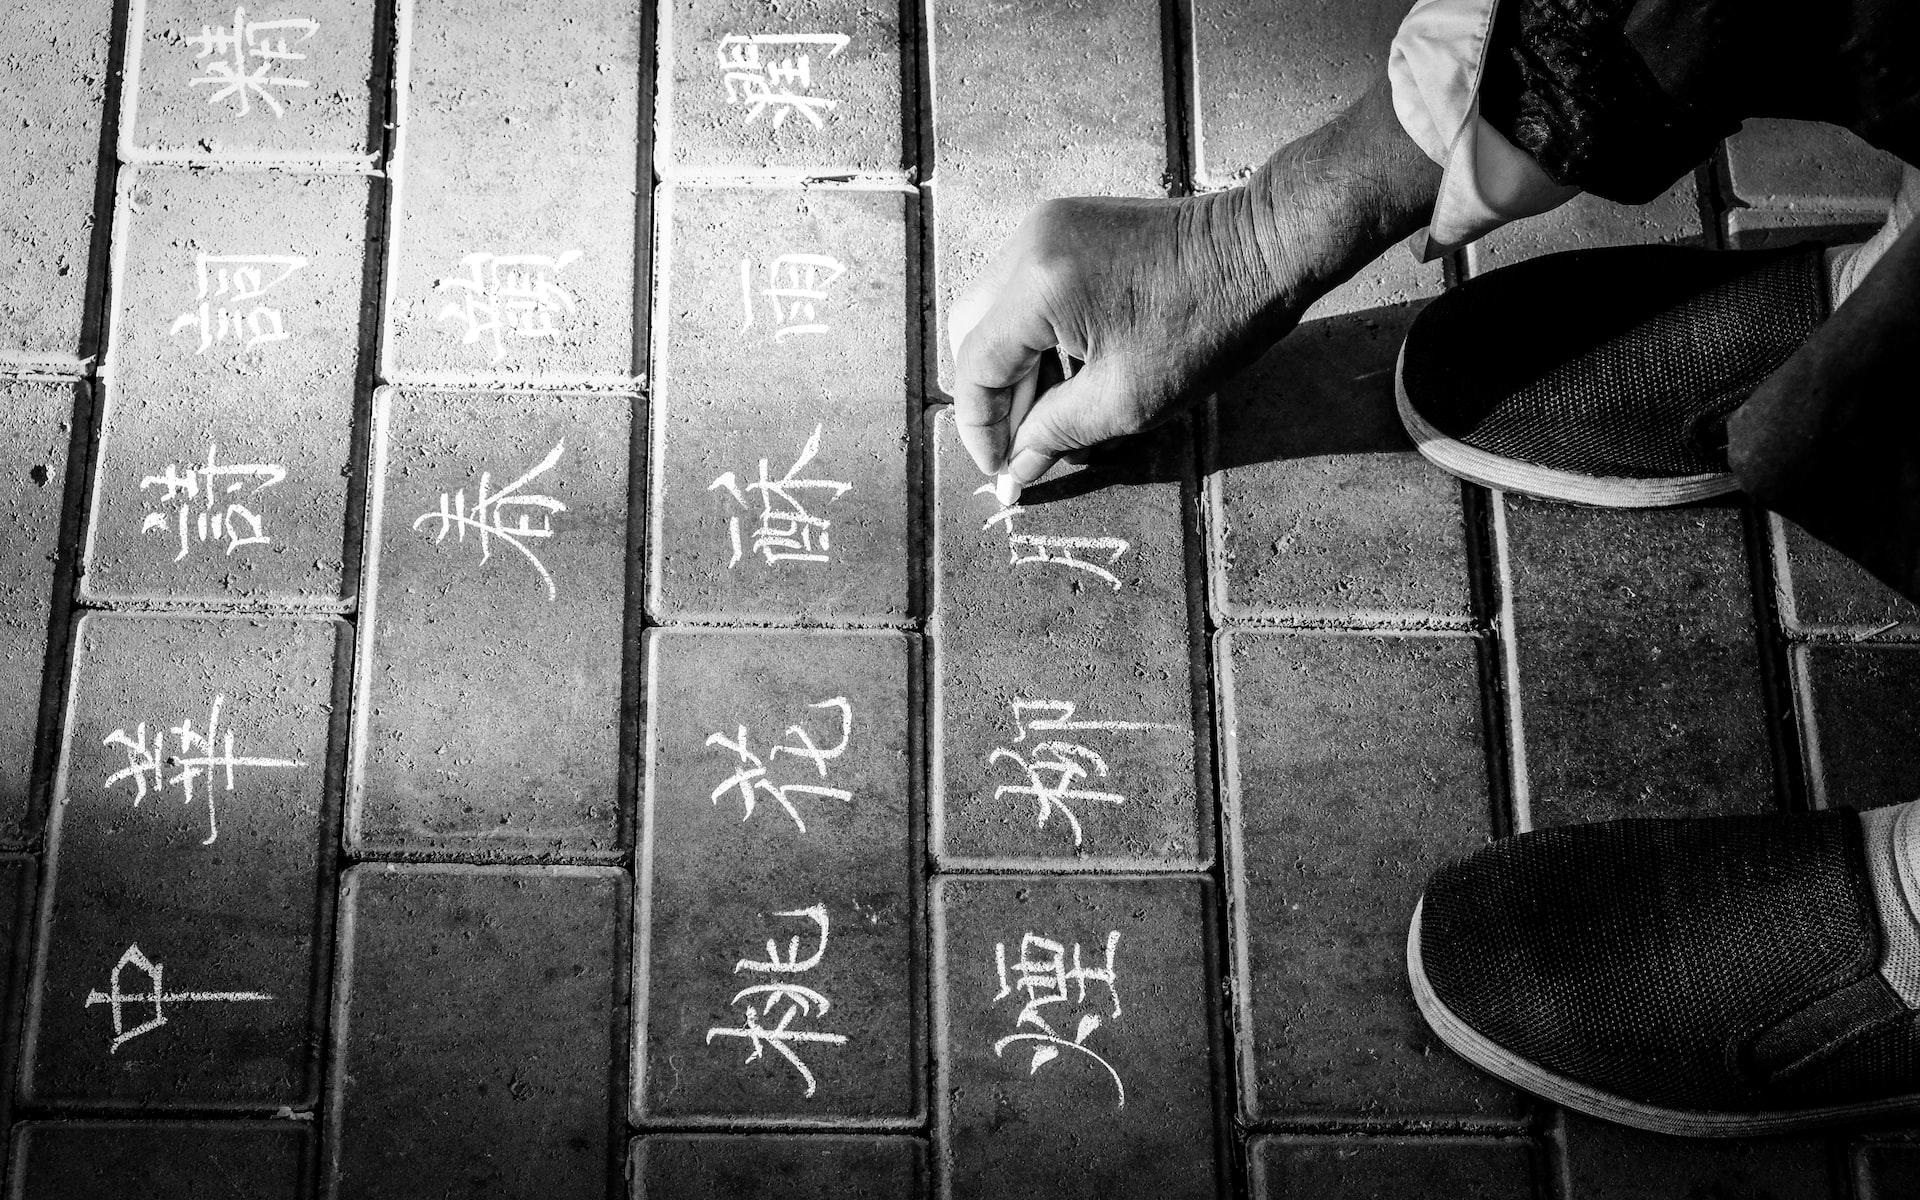 中華詩詞精
春
桃花酥雨潤
煙柳